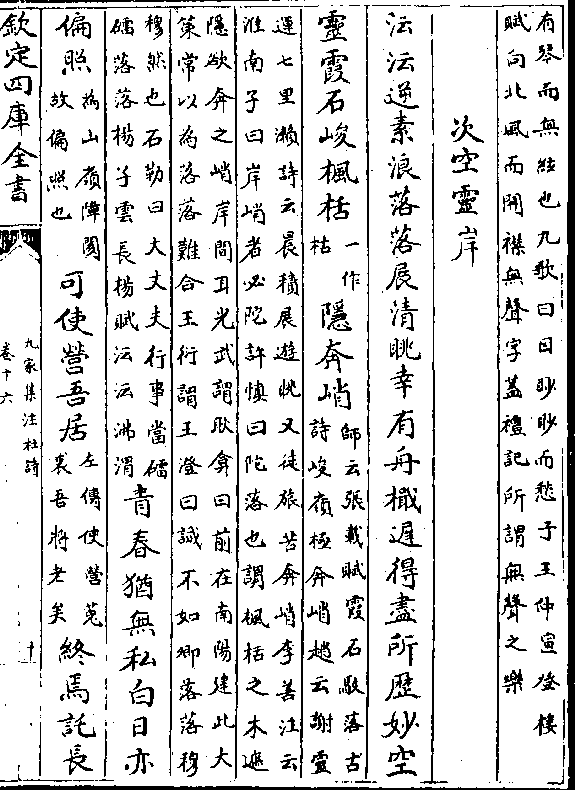 有琴而無絃也九歌曰目眇眇而愁予王仲宣登樓
賦向北風而開襟無聲字蓋禮記所謂無聲之樂
次空靈岸
沄沄逆素浪落落展清眺幸有舟檝遲得盡所歷妙空
靈霞石峻楓栝
一作
枯
隱奔峭
師云張載賦霞石駮落古
詩峻嶺極奔峭趙云謝靈
運七里瀨詩云晨積展遊眺又徒旅苦奔峭李善注云
淮南子曰岸峭者必陁許慎曰陁落也謂楓栝之木遮
隱欲奔之峭岸間耳光武謂耿弇曰前在南陽建此大
策常以為落落難合王衍謂王澄曰誠不如卿落落穆
穆然也石勒曰大丈夫行事當礌
礌落落楊子雲長楊賦沄沄沸渭
青春猶無私白日亦
偏照
為山嶺障閡
故偏照也
可使營吾居
左傳使營菟
裘吾將老矣
終焉託長
欽定四庫全書
九家集注杜詩
卷十六
十